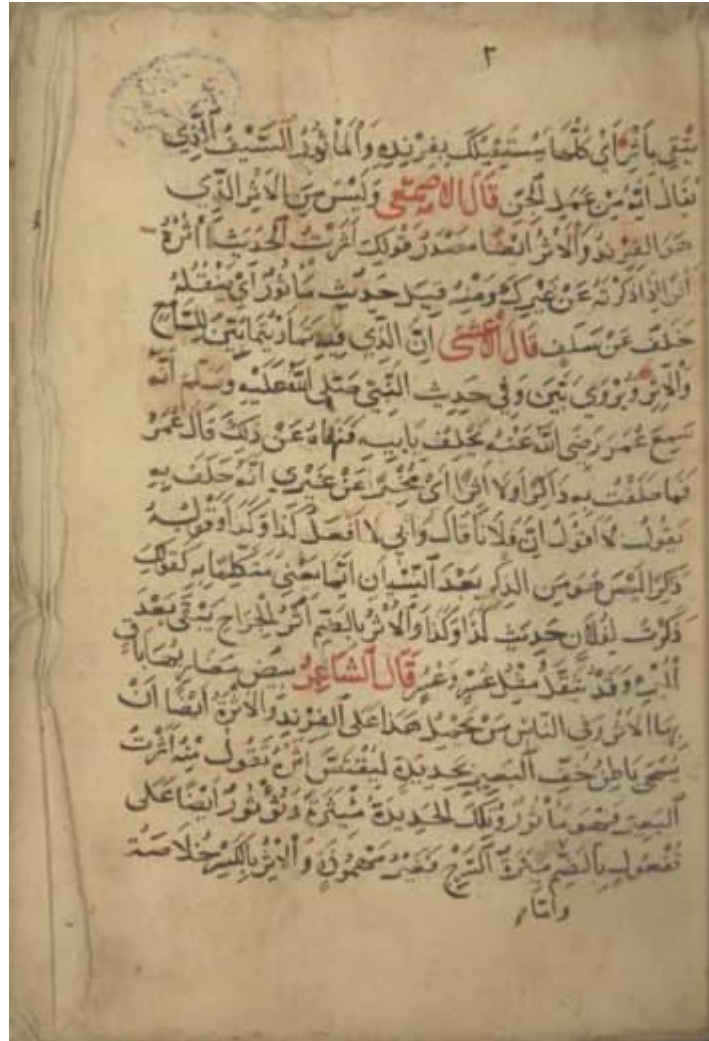 ٢
يتقي بأثر أي كلها يستقبلك بفرنده والمأثور السيف الذي
يقال انه من عمل الجن قال الاصمعي وليس من الاثر الذي
هو الفرند والأثر ايضا مصدر قولك أثرت الحديث اأثره
أثرا اذا ذكرته عن غيرك ومنه قيل حديث مأثور أي ينقله
خلف عن سلف قال الأعشى ان الذي فيه تماريتما بين للسامع
والآثر ويروي بين وفي حديث النبي صلى الله عليه وسلم أنه
سمع عمر رضي الله عنه يحلف بابيه فنهاه عن ذلك قال عمر
فما حلفت به ذاكرا ولا آثرا أي مخبرا عن غيري أنه حلف به
يقول لا اقول ان فلانا قال وأبي لا أفعل كذا وكذا وقوله
ذاكرا ليس هو من الذكر بعد النسيان انما يعني متكلما به كقولك
ذكرت لفلان حديث كذا وكذا والأثر بالضم أثر الجراح يبقى بعد
البرء وقد يثقل مثل عسر وعسر قال الشاعر بيض بها
بها الأثر وفي الناس من يحمل هذا على الفرند والأثرة ايضا أن
يسحى باطن خف البعير بحديدة ليقتص أثره تقول منه أثرت
البعير فهو مأثور وتلك الحديدة مئثرة وتؤثور ايضا على
تفعول بالضم ميثرة السرج فغير مهموز والإثر بالكسر خلاصة
وأما